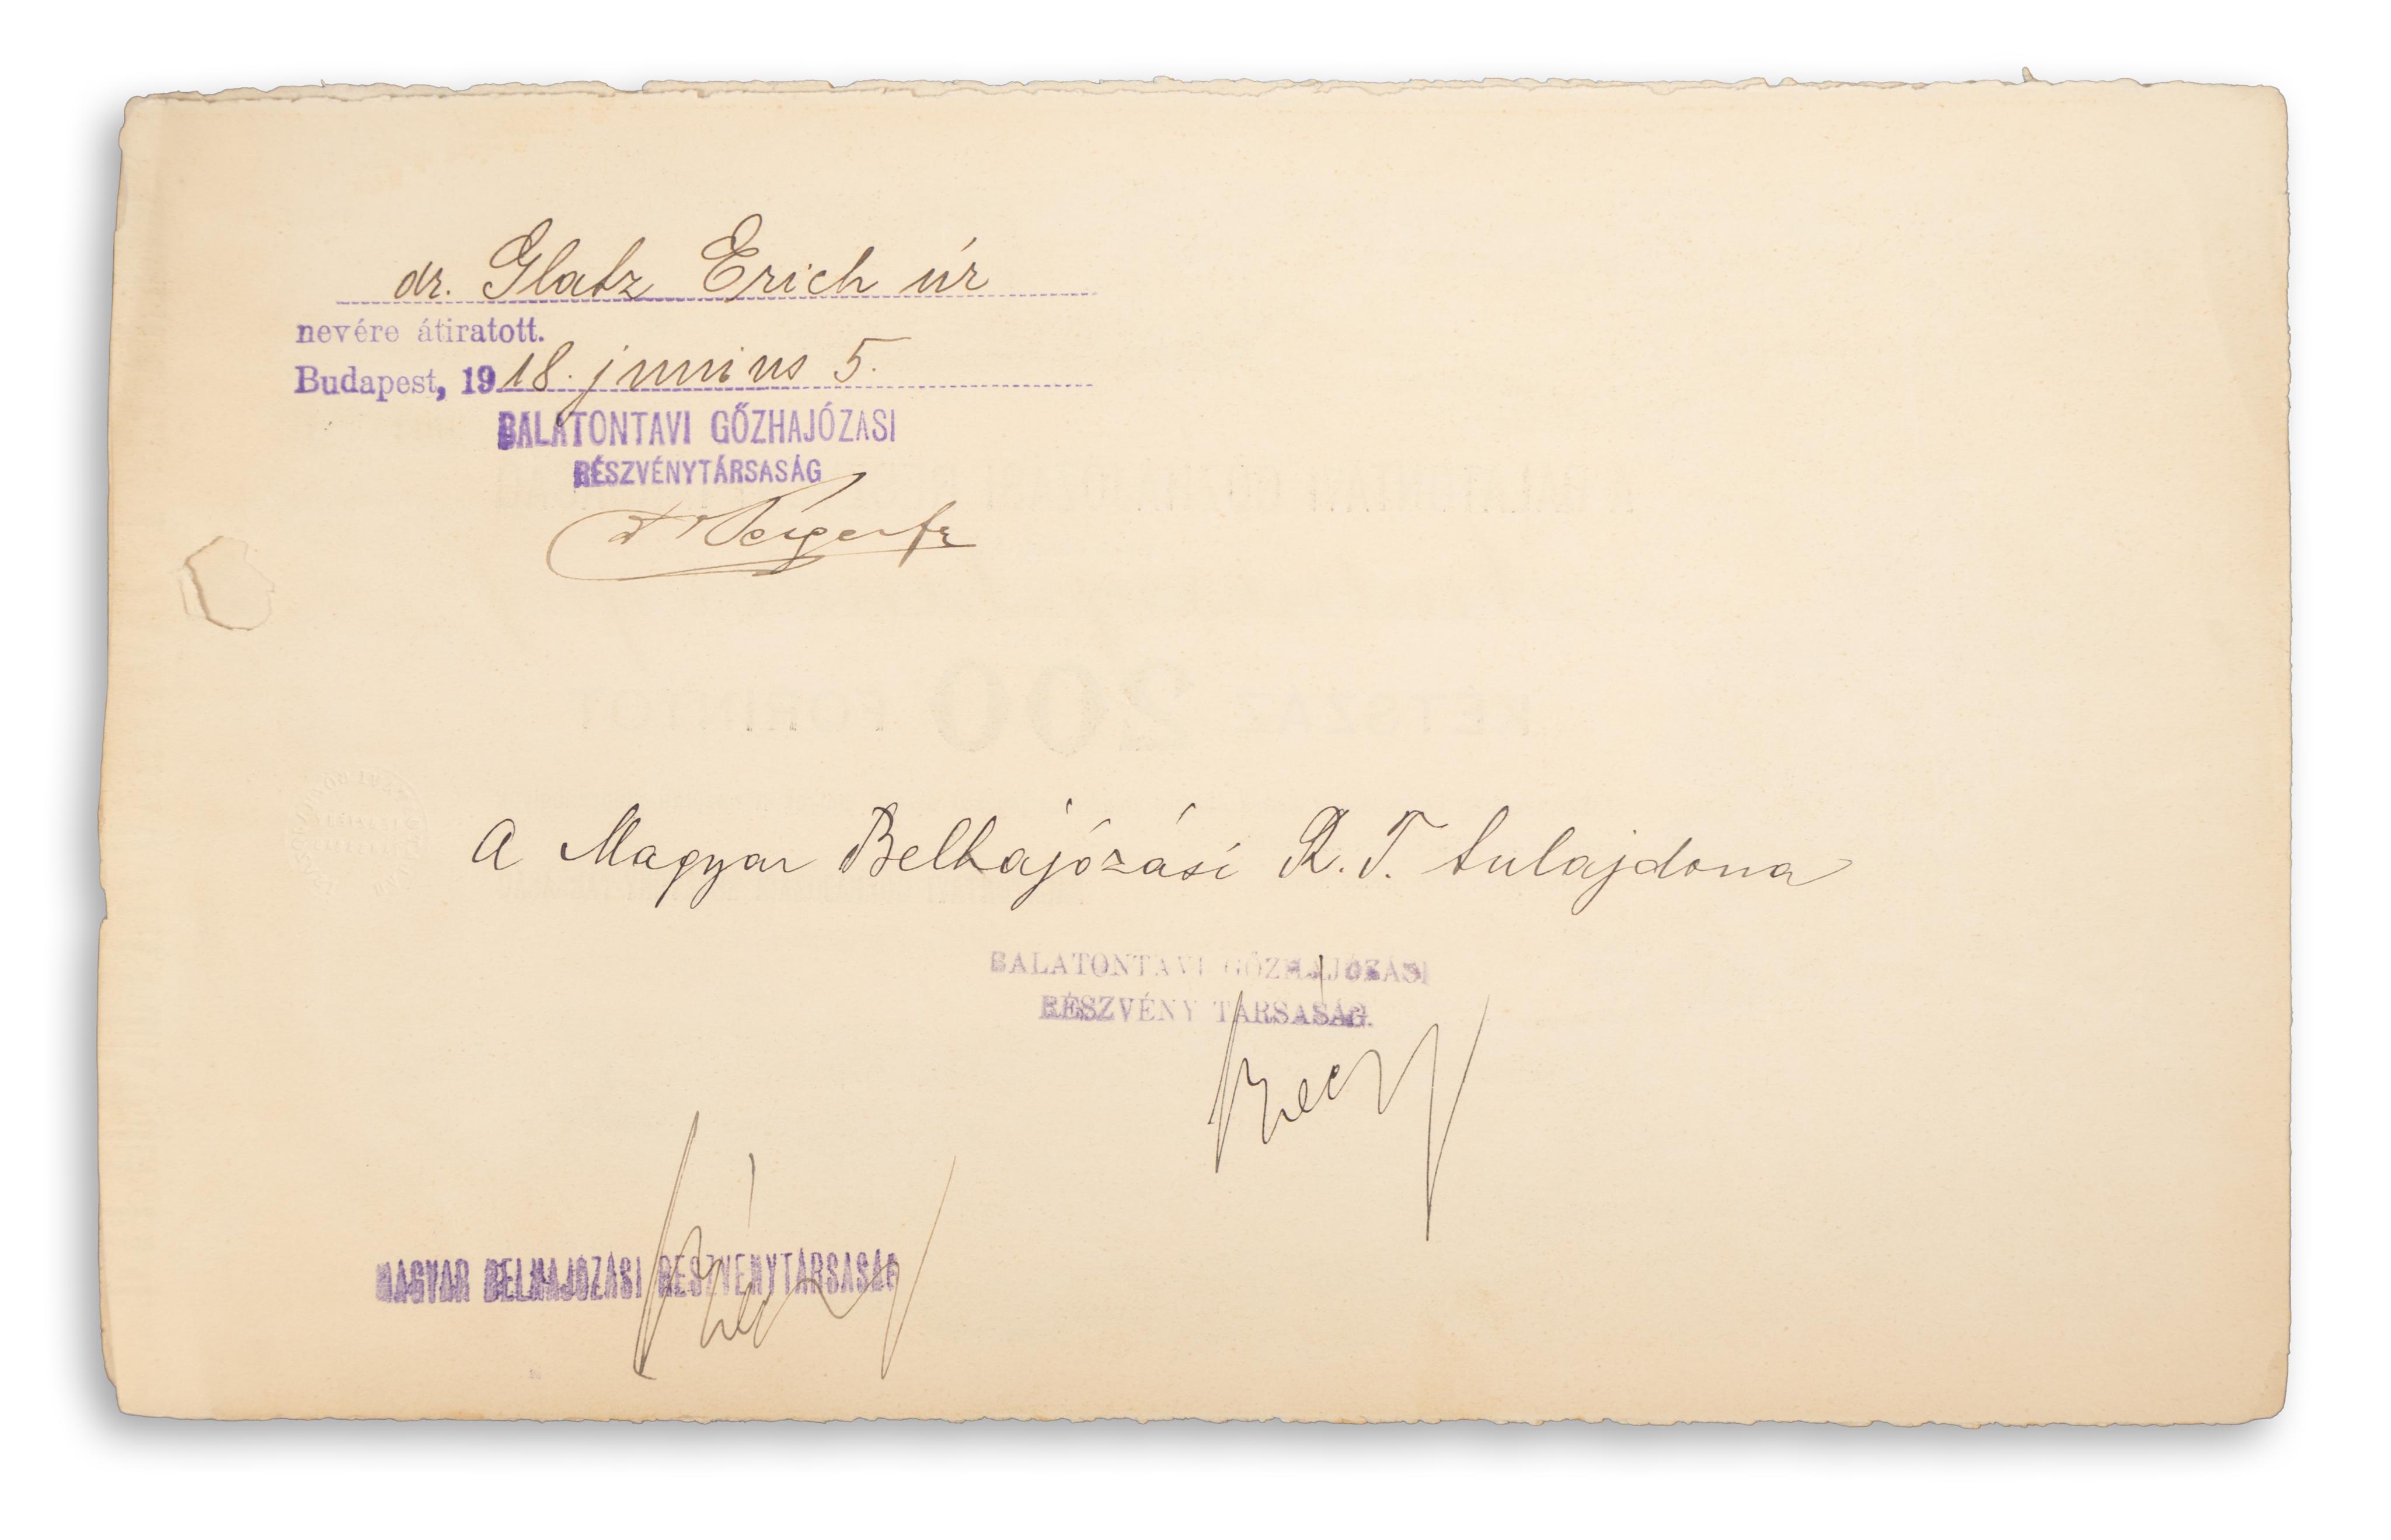 dr. Glatz Erich úr
nevére átiratott.
Budapest, 1918. junius 5.
BALATONTAVI GŐZHAJÓZASI
RÉSZVÉNYTÁRSASÁG
A Magyar Belhajózási R.T. tulajdona
BALATONTAVI GŐZHAJÓZÁSI
RÉSZVÉNY TÁRSASÁG.
MAGYAR BELHAJÓZÁSI RÉSZVÉNYTÁRSASÁG